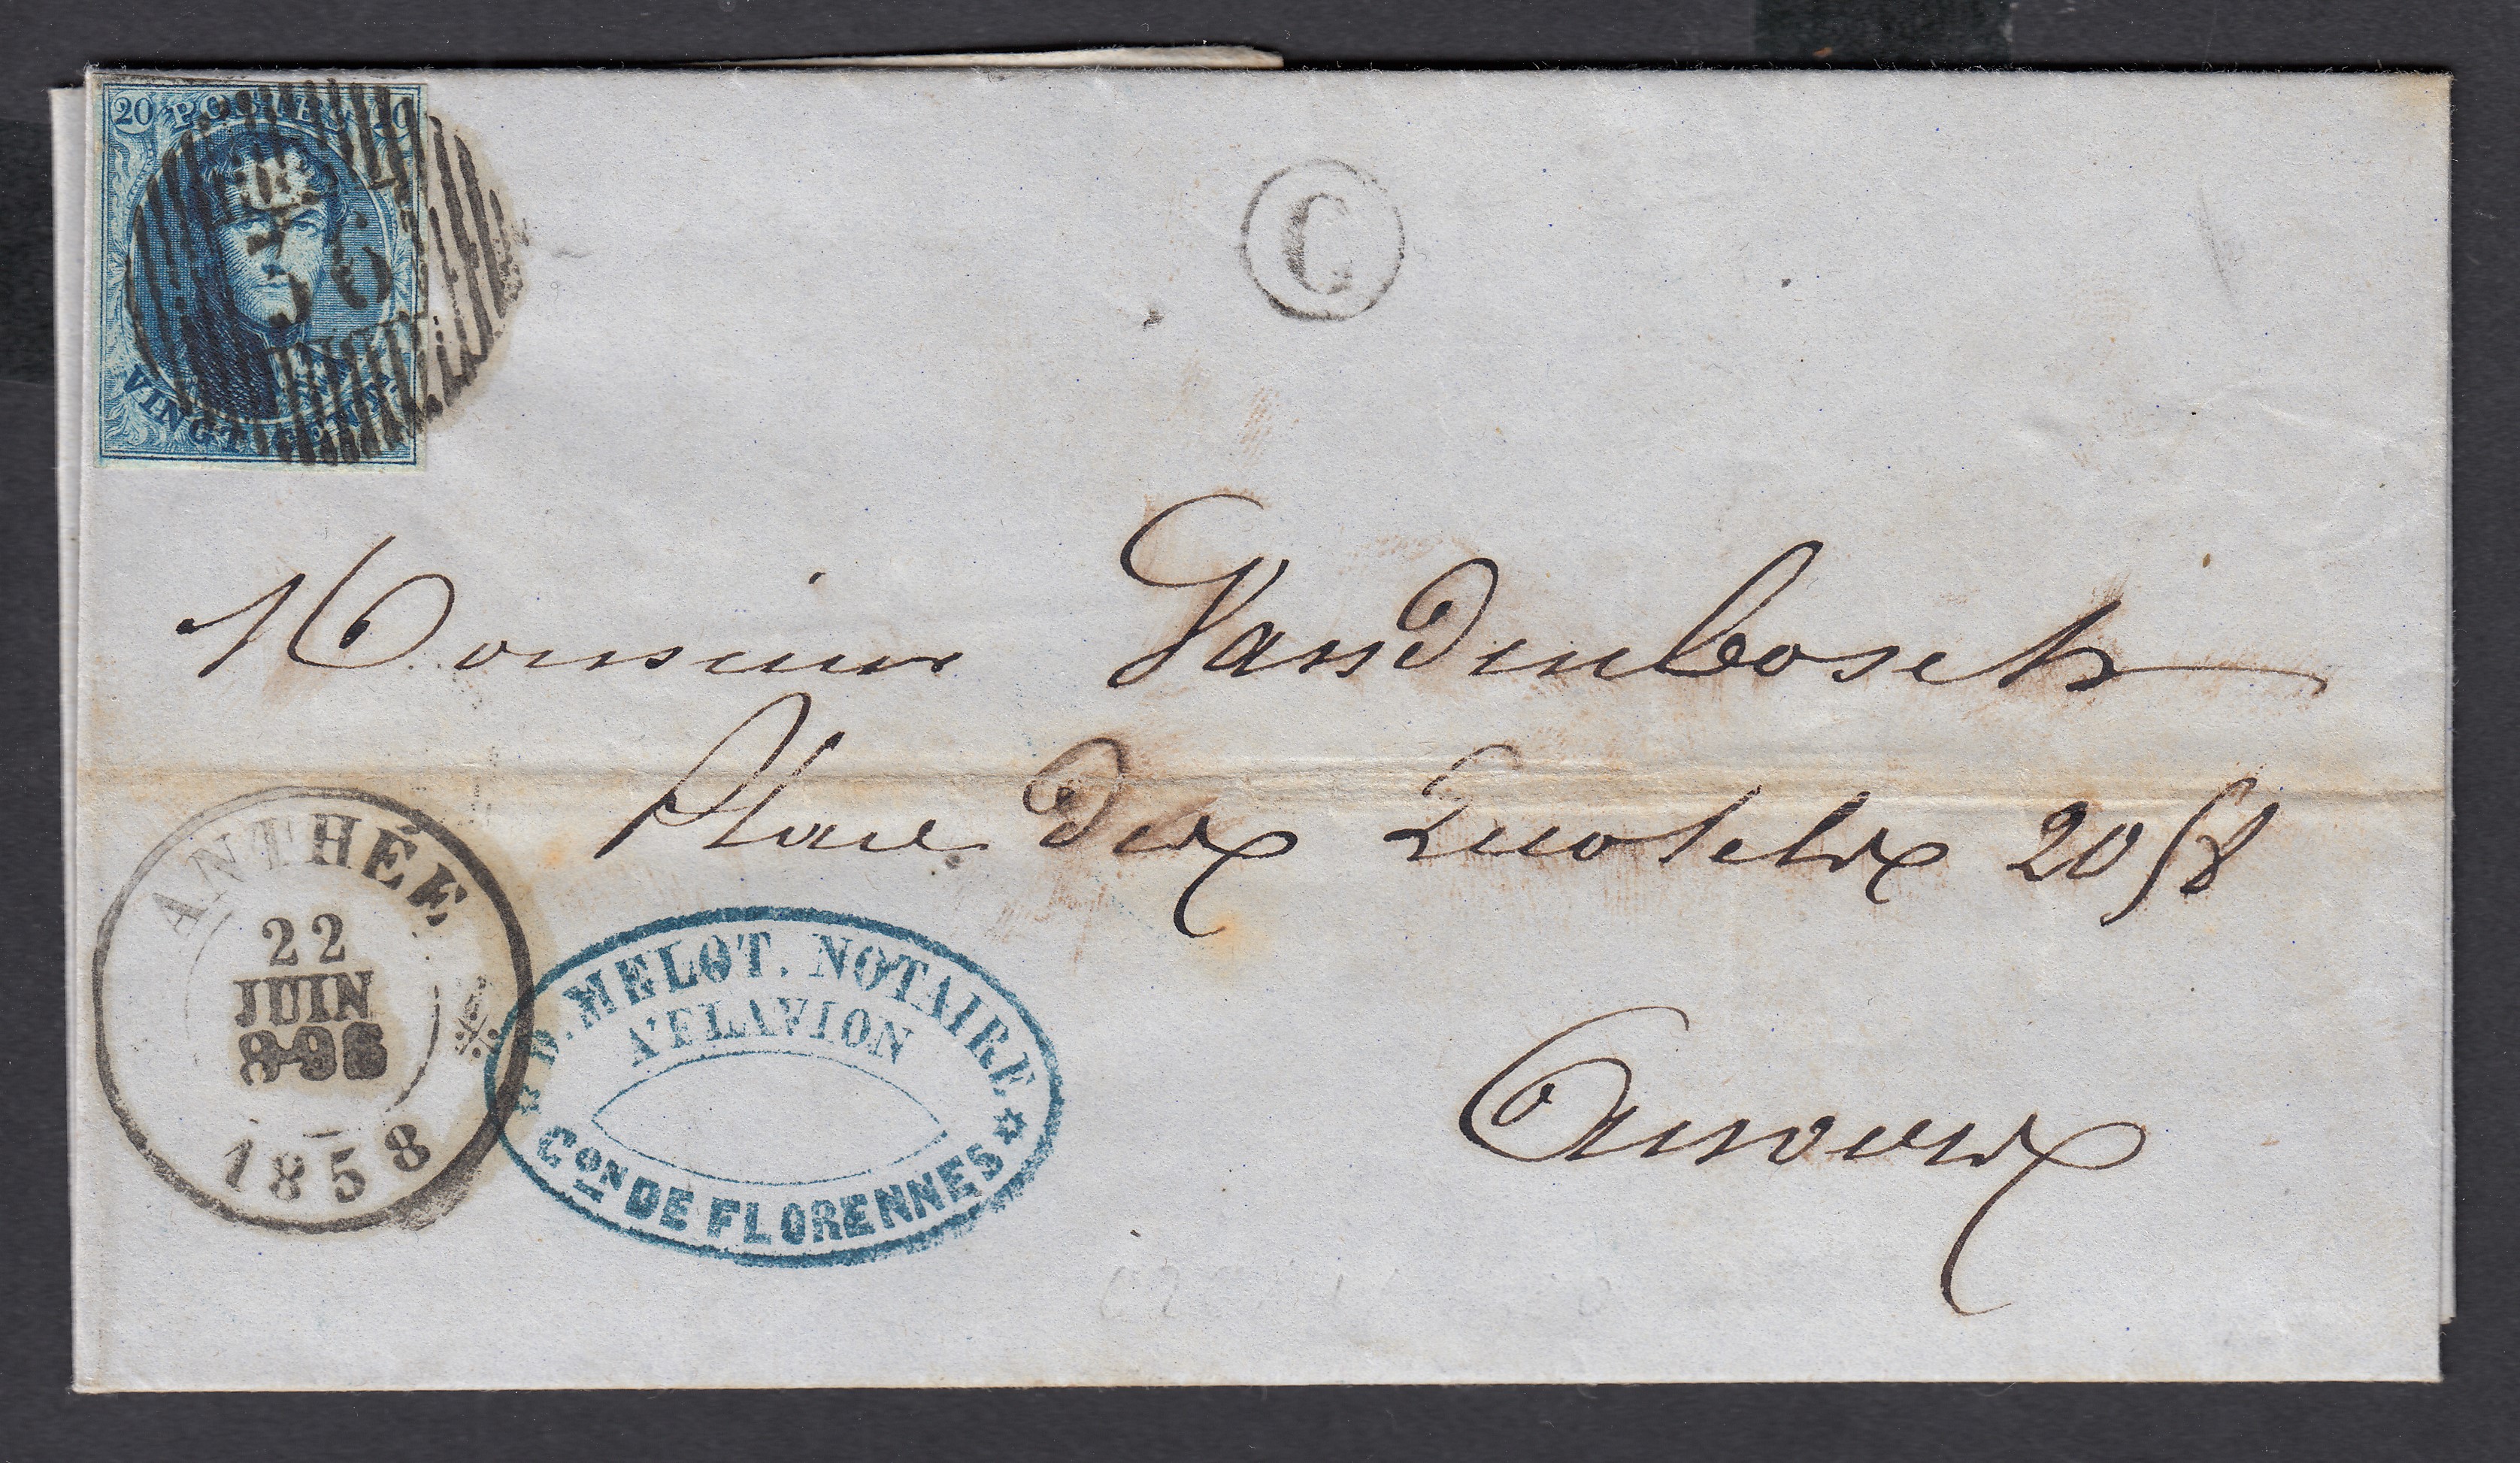 20 POSTES 20
VINGT CENTS
36
C
Monsieur Vandenbosch
Place des 2058
Anvers
ANTHÉE
22
JUIN
1858
D. MELOT. NOTAIRE
A FLAVION
Con DE FLORENNES